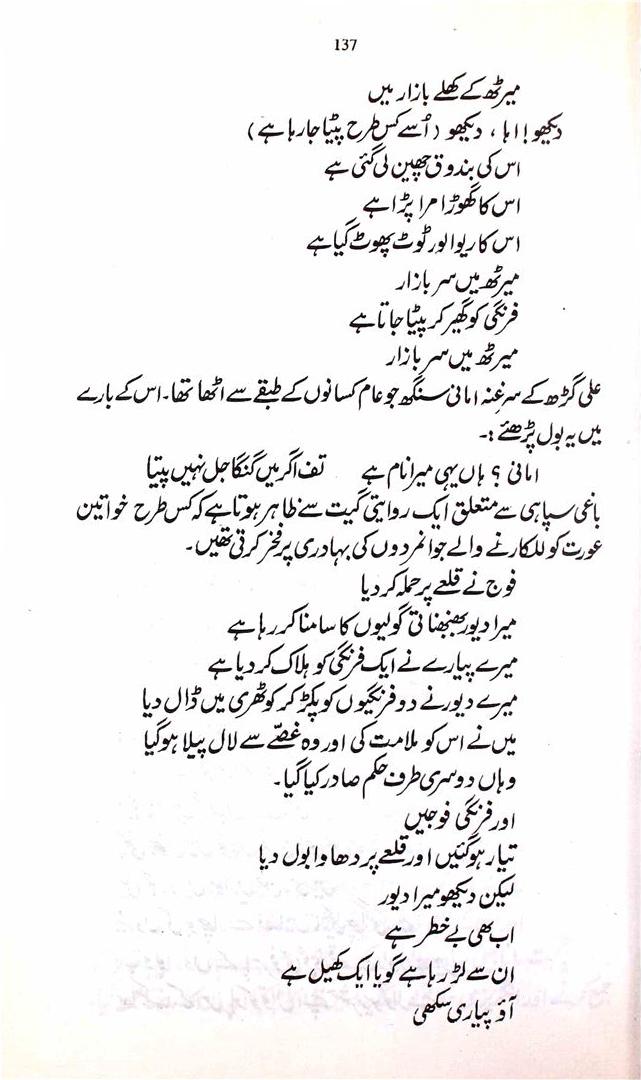 137
میرٹھ کے کھلے بازار میں
دیکھو! اہا، دیکھو (اُسے کس طرح پیٹا جا رہا ہے)
اس کی بندوق چھین لی گئی ہے
اس کا گھوڑا مرا پڑا ہے
اس کا ریوالور ٹوٹ پھوٹ گیا ہے
میرٹھ میں سر بازار
فرنگی کو گھیر کر پیٹا جاتا ہے
میرٹھ میں سر بازار
علی گڑھ کے سرغنہ امانی سنگھ جو عام کسانوں کے طبقے سے اٹھا تھا۔ اس کے بارے
میں یہ بول پڑھئے:۔
امانی؟ ہاں یہی میرا نام ہے تف اگر میں گنگا جل نہیں پیتا
باغی سپاہی سے متعلق ایک روایتی گیت سے ظاہر ہوتا ہے کہ کس طرح خواتین
عورت کو للکارنے والے جوانمردوں کی بہادری پر فخر کرتی تھیں۔
فوج نے قلعے پر حملہ کر دیا
میرا دیور بھنبھناتی گولیوں کا سامنا کر رہا ہے
میرے پیارے نے ایک فرنگی کو ہلاک کر دیا ہے
میرے دیور نے دو فرنگیوں کو پکڑ کر کوٹھری میں ڈال دیا
میں نے اس کو ملامت کی اور وہ غصّے سے لال پیلا ہو گیا
وہاں دوسری طرف حکم صادر کیا گیا۔
اور فرنگی فوجیں
تیار ہو گئیں اور قلعے پر دھاوا بول دیا
لیکن دیکھو میرا دیور
اب بھی بے خطر ہے
ان سے لڑ رہا ہے گویا ایک کھیل ہے
آؤ پیاری سکھی